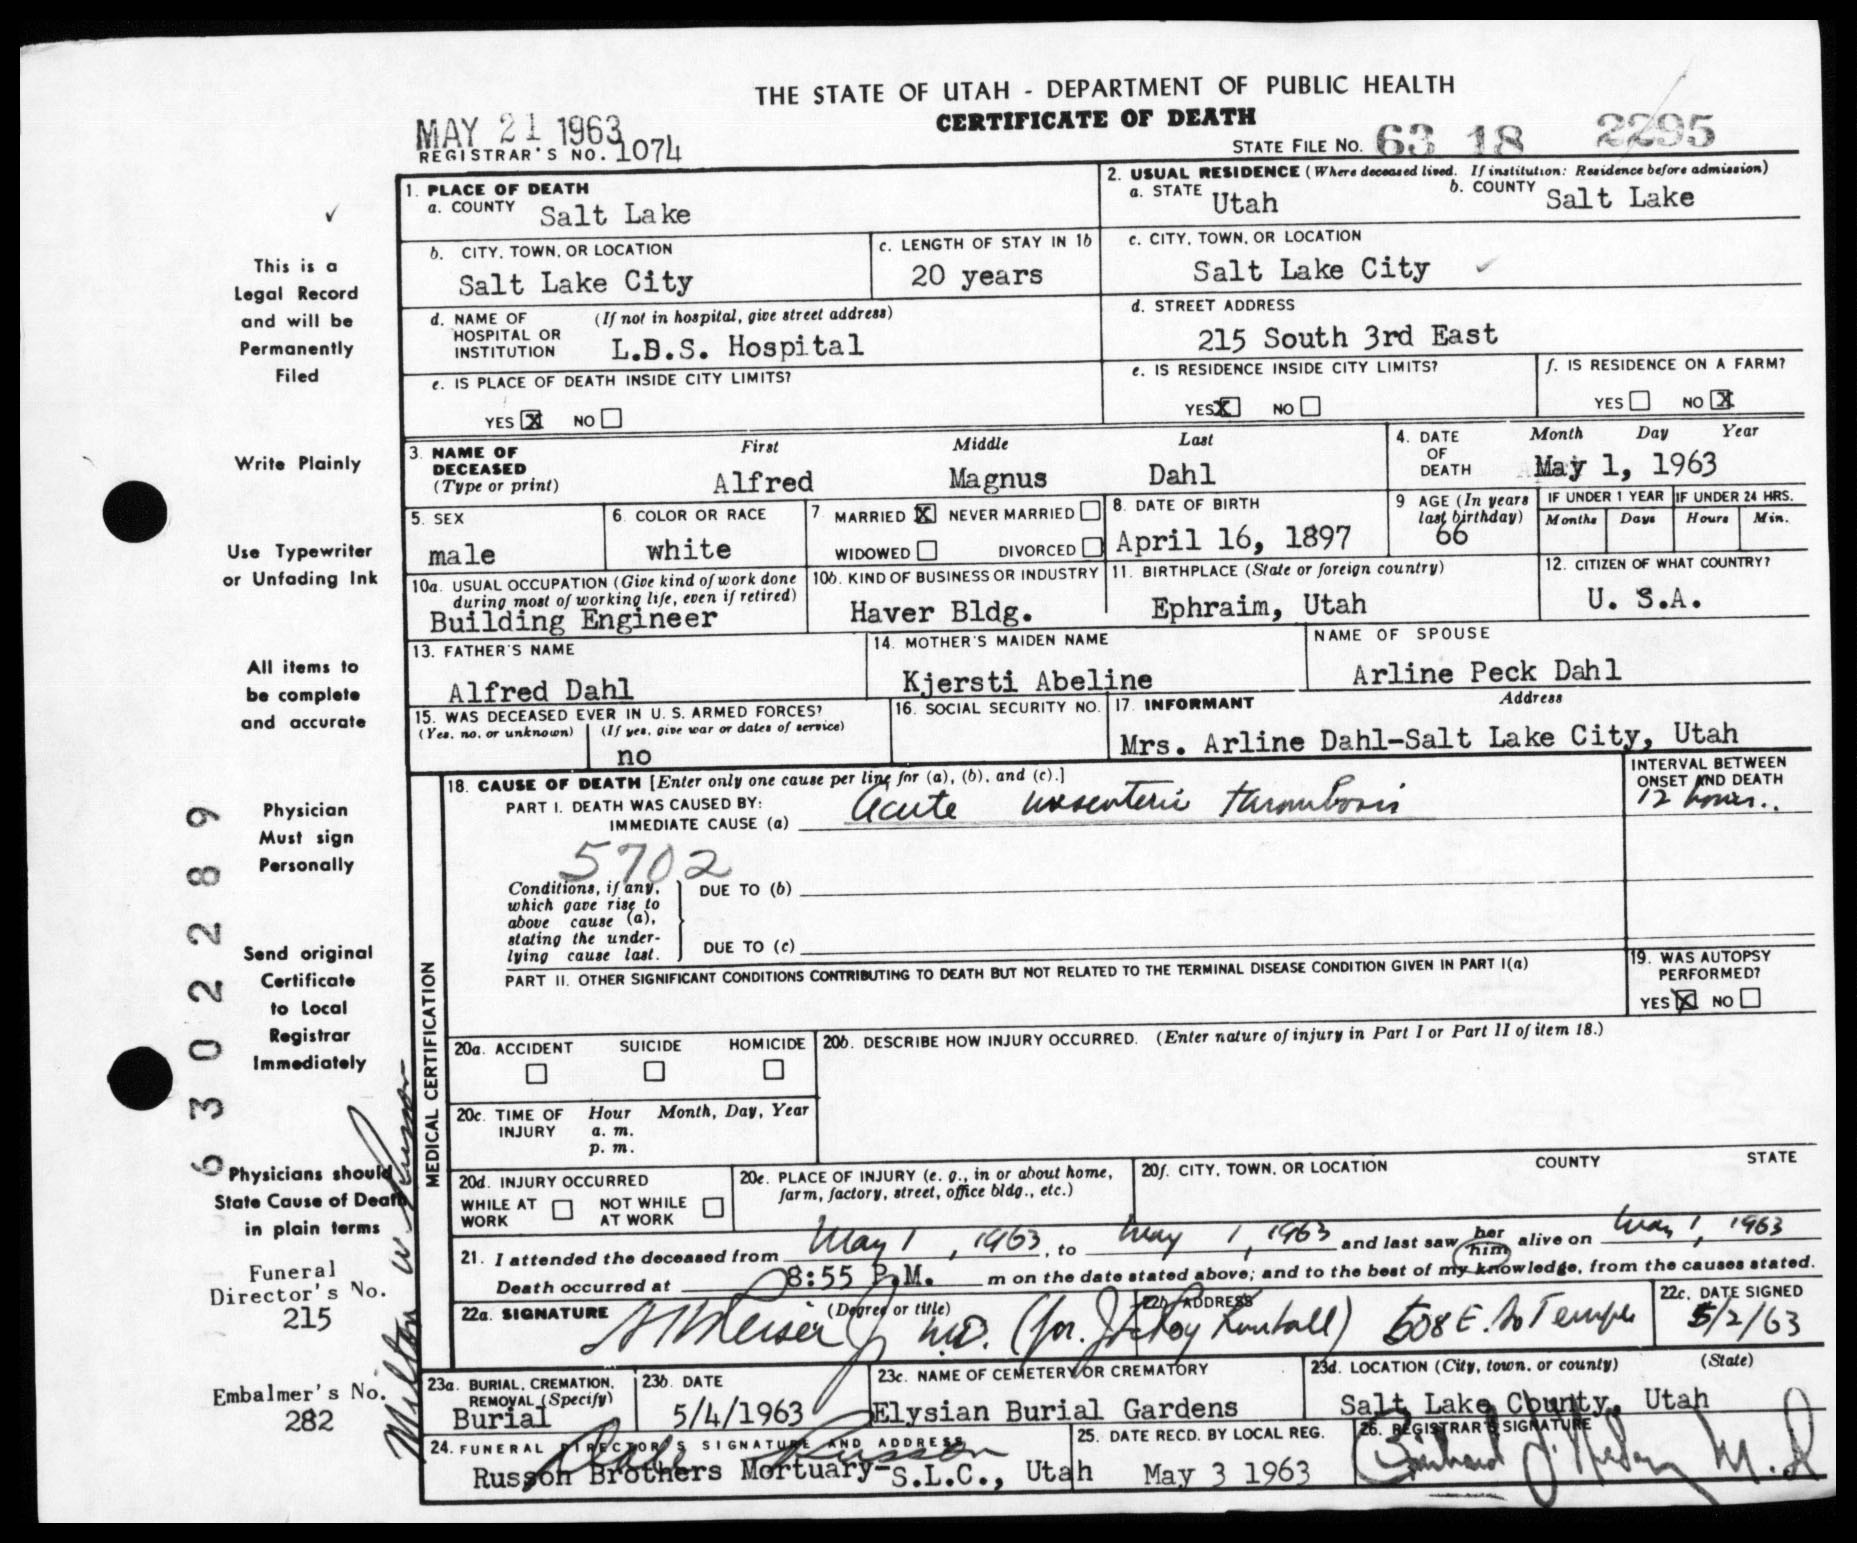 THE STATE OF UTAH - DEPARTMENT OF PUBLIC HEALTH
CERTIFICATE OF DEATH
MAY 21 1963
REGISTRAR'S NO. 1074
STATE FILE NO. 63 18 2295
1. PLACE OF DEATH
a. COUNTY Salt Lake
2. USUAL RESIDENCE (Where deceased lived. If institution: Residence before admission)
a. STATE Utah b. COUNTY Salt Lake
b. CITY, TOWN, OR LOCATION
Salt Lake City
c. LENGTH OF STAY IN 1b
20 years
c. CITY, TOWN, OR LOCATION
Salt Lake City
d. NAME OF HOSPITAL OR INSTITUTION (If not in hospital, give street address)
L.D.S. Hospital
d. STREET ADDRESS
215 South 3rd East
e. IS PLACE OF DEATH INSIDE CITY LIMITS?
YES X NO
e. IS RESIDENCE INSIDE CITY LIMITS?
YES X NO
f. IS RESIDENCE ON A FARM?
YES NO X
3. NAME OF DECEASED (Type or print)
First Middle Last
Alfred Magnus Dahl
4. DATE OF DEATH
Month Day Year
May 1, 1963
5. SEX
male
6. COLOR OR RACE
white
7. MARRIED X NEVER MARRIED
WIDOWED DIVORCED
8. DATE OF BIRTH
April 16, 1897
9 AGE (In years last birthday)
66
IF UNDER 1 YEAR
Months Days
IF UNDER 24 HRS.
Hours Min.
10a. USUAL OCCUPATION (Give kind of work done during most of working life, even if retired)
Building Engineer
10b. KIND OF BUSINESS OR INDUSTRY
Haver Bldg.
11. BIRTHPLACE (State or foreign country)
Ephraim, Utah
12. CITIZEN OF WHAT COUNTRY?
U. S.A.
13. FATHER'S NAME
Alfred Dahl
14. MOTHER'S MAIDEN NAME
Kjersti Abeline
NAME OF SPOUSE
Arline Peck Dahl
15. WAS DECEASED EVER IN U. S. ARMED FORCES?
(Yes, no, or unknown) (If yes, give war or dates of service)
no
16. SOCIAL SECURITY NO.
17. INFORMANT Address
Mrs. Arline Dahl-Salt Lake City, Utah
MEDICAL CERTIFICATION
18. CAUSE OF DEATH [Enter only one cause per line for (a), (b), and (c).]
PART I. DEATH WAS CAUSED BY:
IMMEDIATE CAUSE (a) Acute mesenteric thrombosis
INTERVAL BETWEEN ONSET AND DEATH
12 hours..
5702
Conditions, if any, which gave rise to above cause (a), stating the underlying cause last.
DUE TO (b)
DUE TO (c)
PART II. OTHER SIGNIFICANT CONDITIONS CONTRIBUTING TO DEATH BUT NOT RELATED TO THE TERMINAL DISEASE CONDITION GIVEN IN PART I(a)
19. WAS AUTOPSY PERFORMED?
YES X NO
20a. ACCIDENT SUICIDE HOMICIDE
20b. DESCRIBE HOW INJURY OCCURRED. (Enter nature of injury in Part I or Part II of item 18.)
20c. TIME OF INJURY Hour Month, Day, Year
a. m.
p. m.
20d. INJURY OCCURRED
WHILE AT WORK NOT WHILE AT WORK
20e. PLACE OF INJURY (e. g., in or about home, farm, factory, street, office bldg., etc.)
20f. CITY, TOWN, OR LOCATION COUNTY STATE
21. I attended the deceased from May 1, 1963, to May 1, 1963 and last saw her him alive on May 1, 1963
Death occurred at 8:55 P.M. m on the date stated above; and to the best of my knowledge, from the causes stated.
22a. SIGNATURE (Degree or title)
M.D. (for J. LeRoy Kimball)
22b. ADDRESS
508 E. So Temple
22c. DATE SIGNED
5/2/63
23a. BURIAL, CREMATION, REMOVAL (Specify)
Burial
23b. DATE
5/4/1963
23c. NAME OF CEMETERY OR CREMATORY
Elysian Burial Gardens
23d. LOCATION (City, town, or county) (State)
Salt Lake County, Utah
24. FUNERAL DIRECTOR'S SIGNATURE AND ADDRESS
Dale Russon
Russon Brothers Mortuary-S.L.C., Utah
25. DATE RECD. BY LOCAL REG.
May 3 1963
26. REGISTRAR'S SIGNATURE
M.D
This is a
Legal Record
and will be
Permanently
Filed
Write Plainly
Use Typewriter
or Unfading Ink
All items to
be complete
and accurate
Physician
Must sign
Personally
Send original
Certificate
to Local
Registrar
Immediately
Physicians should
State Cause of Death
in plain terms
Funeral
Director's No.
215
Embalmer's No.
282
6302289
Milton W. Russon